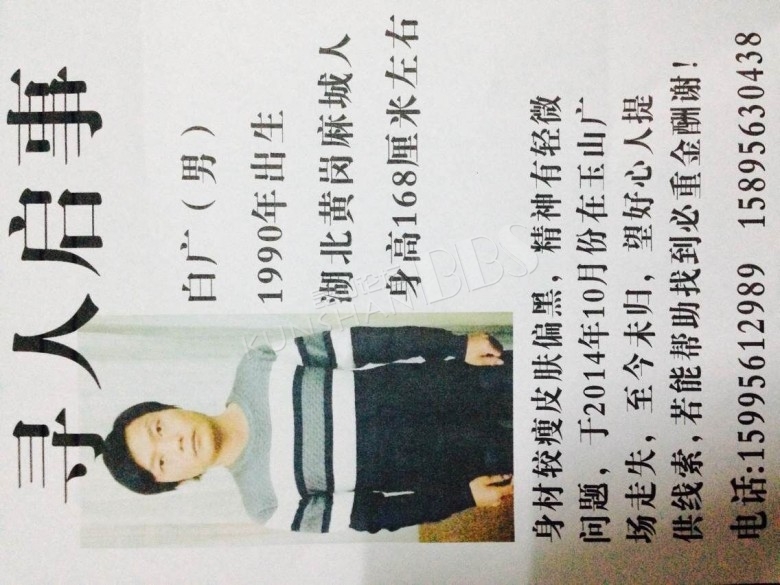 寻人启事
白广（男）
1990年出生
湖北黄岗麻城人
身高168厘米左右
身材较瘦皮肤偏黑，精神有轻微
问题，于2014年10月份在玉山广
场走失，至今未归，望好心人提
供线索，若能帮助找到必重金酬谢！
电话:15995612989 15895630438
KUNSHAN BBS